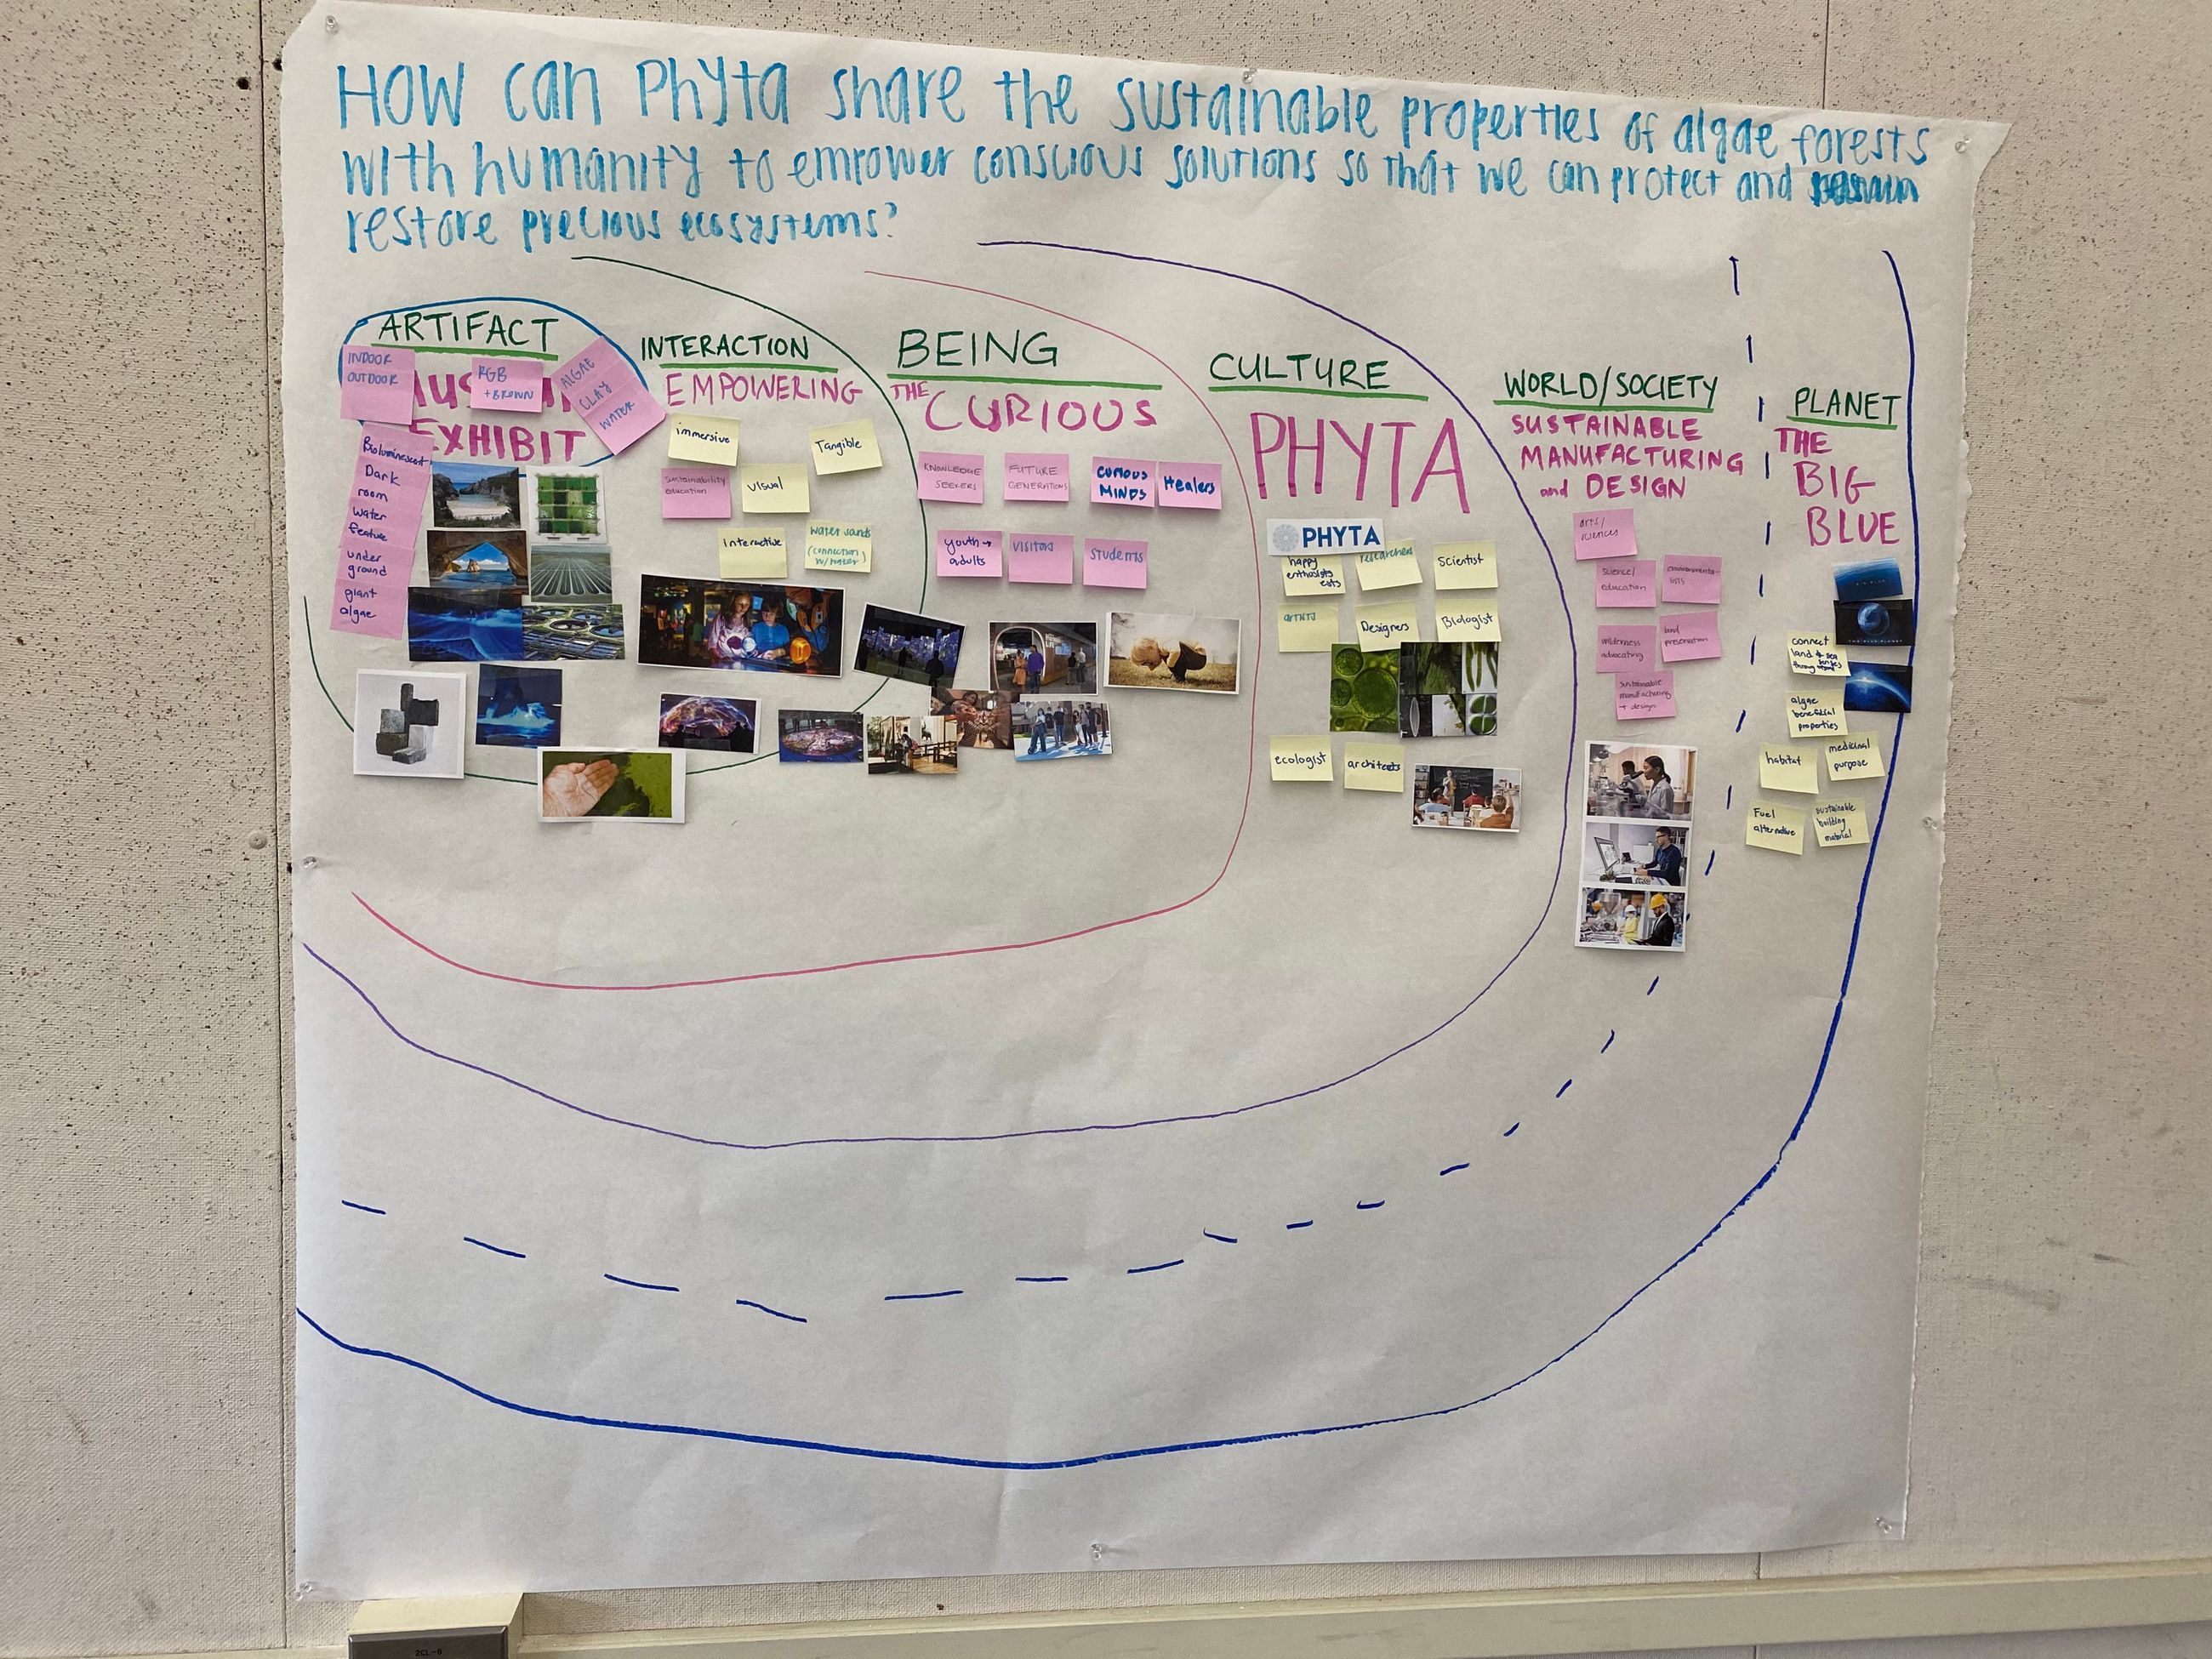 HOW can Phyta share the sustainable properties of algae forests
with humanity to empower conscious solutions so that we can protect and
restore precious ecosystems?
ARTIFACT
INDOOR
OUTDOOR
RGB
+BROWN
ALGAE
CLAY
WATER
EXHIBIT
Bioluminescent
Dark
room
water
feature
under
ground
giant
algae
INTERACTION
EMPOWERING
immersive
Tangible
sustainability
education
visual
Interactive
water sands
(connection
w/water)
BEING
THE
CURIOUS
KNOWLEDGE
SEEKERS
FUTURE
GENERATIONS
CURIOUS
MINDS
Healers
youth →
adults
VISITORS
STUDENTS
CULTURE
PHYTA
PHYTA
happy
enthusists
researchers
Scientist
artists
Designers
Biologist
ecologist
architects
WORLD/SOCIETY
SUSTAINABLE
MANUFACTURING
and DESIGN
arts/
sciences
science/
education
wilderness
advocating
land
sustainable
manufacturing
→ design
PLANET
THE
BIG
BLUE
connect
land & sea
algae
beneficial
properties
habitat
medicinal
purpose
Fuel
alternative
sustainable
building
material
2CL-8